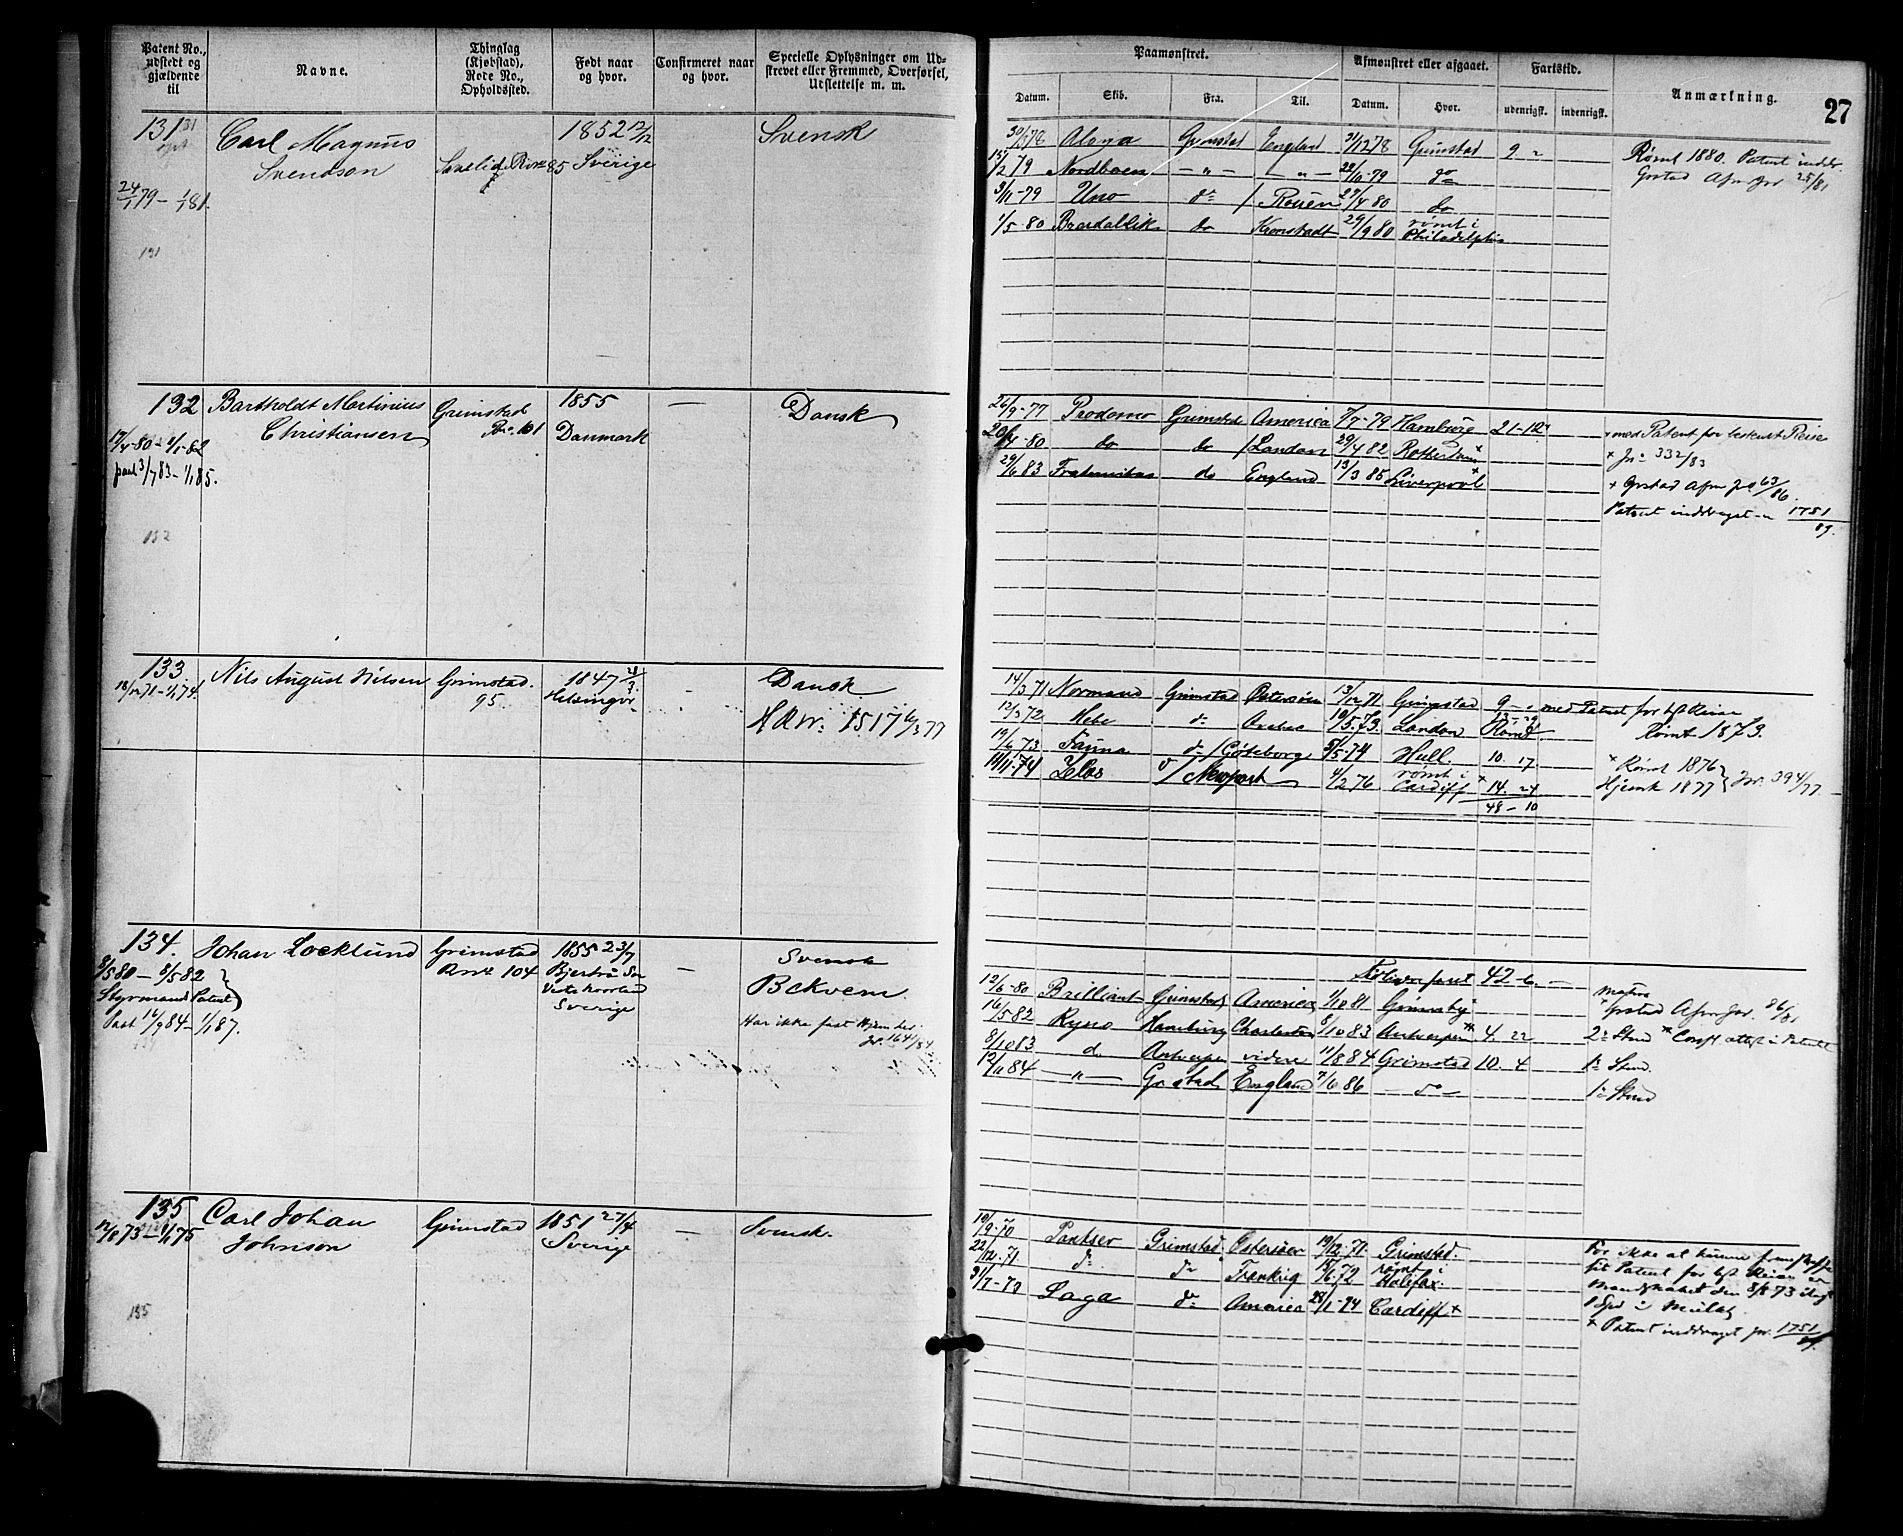 Patent No., udstedt og gjældende til
Navne.
Thinglag (Kjøbstad), Rode No., Opholdssted.
Født naar og hvor.
Confirmeret naar og hvor.
Specielle Oplysninger om Udskrevet eller Fremmed, Overførsel, Udslettelse m. m.
Paamønstret.
Afmønstret eller afgaaet.
Fartstid.
Anmærkning.
27
Datum. Skib. Fra. Til. Datum. Hvor. udenrigsk. indenrigsk.
131
Carl Magnus
Svendson
1852 12/12
Sverige
Svensk
24/1 79 - 1/1 81.
131
30/3 78 Alaya Grimstad England 31/12 78 Grimstad 9 "
15/2 79 Nordboen - " - - " - 22/10 - 79 do
3/11 - 79 Uno do / Rouen 27/4 80 do
1/5 - 80 do Kronstadt 29/9 80 rømt i Philadelphia
Rømt 1880. Patent inddr.
Grstad Afm Jnr 25/81
132 Bartholdt Martinius
Christiansen
Grimstad
Rno. 101
1855
Danmark
—
Dansk
17/4 - 80 - 1/1 - 82
paat 3/7 83 - 1/1 85.
132
26/9 - 77 Prodomo Grimstad America 7/7 - 79 Hambure 21 - 12
20/4 - 80 do do / London 29/4 82 Rotterdam x
29/6 83 Fraternitas do England 13/3 85 Liverpool x
+ med Patent for bestemt Reise
+ Jn 332/83
+ Grstad Afm Jno 63/86.
Patent inddraget 1751/89.
133 Nils August Nilsen
Grimstad.
95.
1847
Helsingør
Dansk
18/12 71 - 1/1 74.
14/3 71 Normand Grimstad Østersøen 13/12 71 Grimstad 9 - "
12/3 72 Hebe do 10/5 73. London Rømt
19/6 73 Fauna do / Göteborg 5/5 - 74 Hull 10. 17
11/11 - 74 Zelos / Newport 4/2 76 rømt i Cardiff x 14. 24
48 - 10
med Patent for bst Reise
Rømt 1873.
x Rømt 1876
Hjemk 1877 } Jnr. 394/77
134. Johan Locklund
Grimstad
Rno 104
1855 23/7
Sverige
—
Svensk
Bekvem.
Har ikke fast Hjemsted
Jnr. 164/84
8/5 80 - 8/5 82
Styrmands Patent
Past 16/9 84 - 1/1 87.
42 - 6. -
12/6 - 80 Brilliant Grimstad America 1/10 81 Grimsby
16/5 82 Ryno Hamburg Charleston 6/10 83 Antwerpen 4. 22
8/10 83 d. Antwerpen videre 11/8 84 Grimstad 10. 4
12/11 84 - " - Gr stad England 7/6 86 - do -
matros
x Grstad Afm Jnr. 86/81
2n Stmd
1n Stmd.
1n Stmd
135 Carl Johan
Johnson
Grimstad
1851 27/4
Sverige
—
Svensk.
12/8 73 - 1/1 75
135
10/9 - 70 Pantser Grimstad. Østersøen 19/12 71. Grimstad.
22/12. 71 do do Frankrig 15/6. 72 rømt i Halifax.
31/7 - 73 Saga do America 28/1 - 74 Cardiff +
For ikke at kunne
sit Patent for bst Reise er
Mandskabet den 8/8 73
1 Spd i Mulkt.
x Patent inddraget jnr. 1751/89.